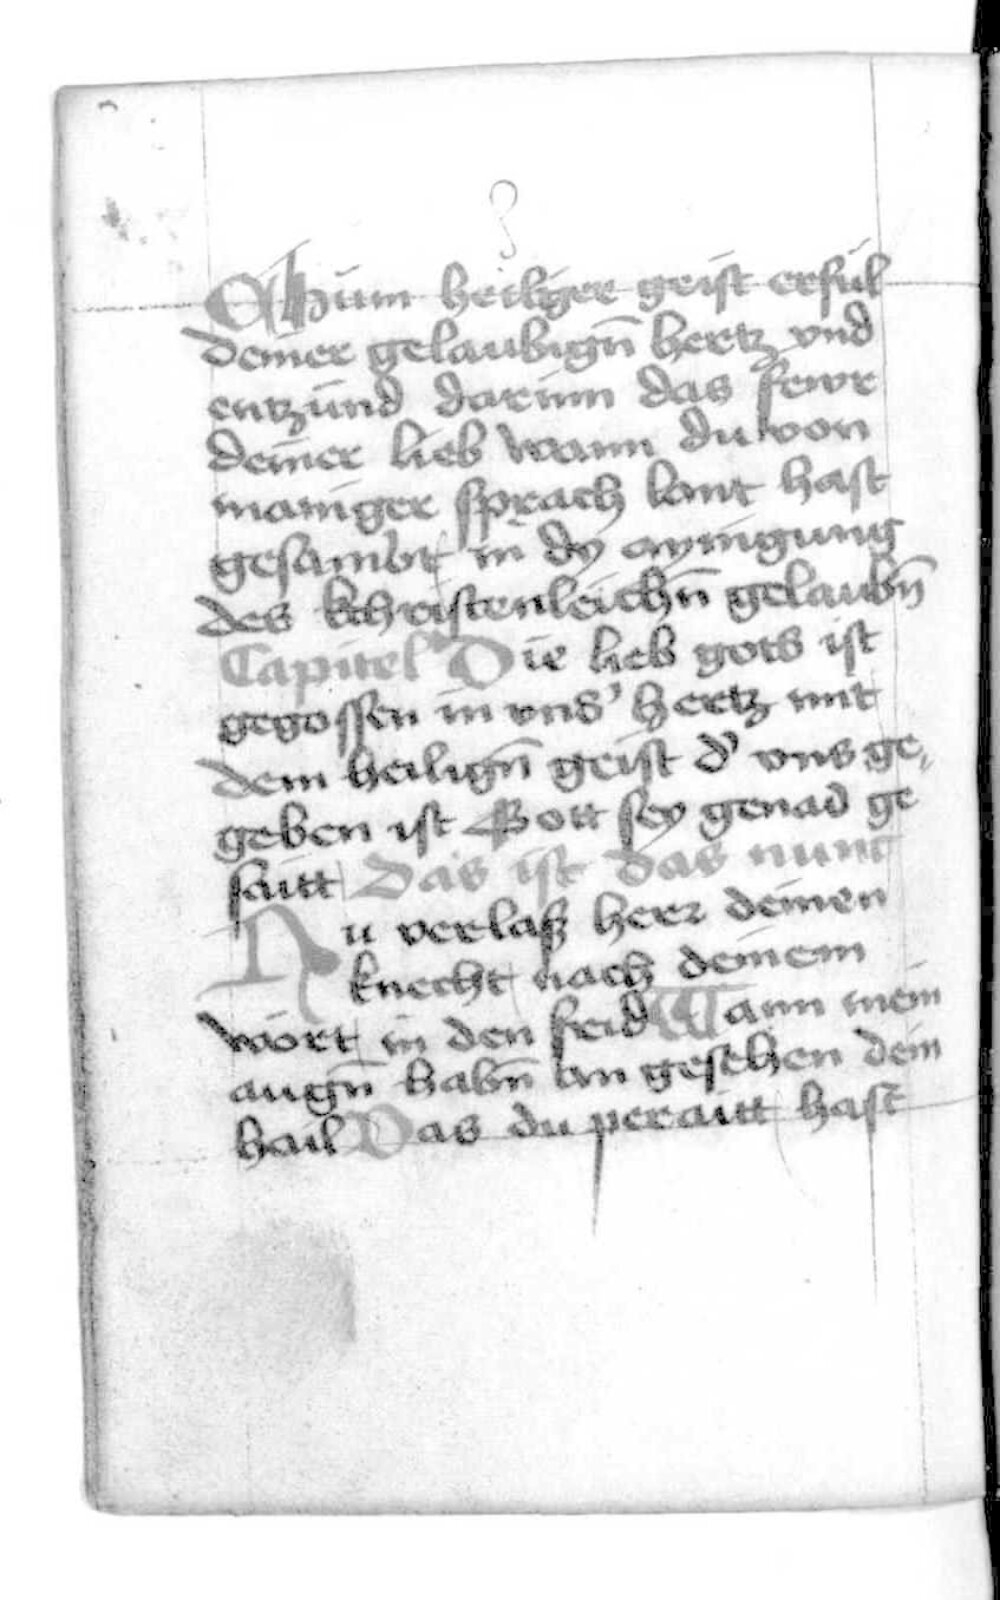 Chüm heiliger geist erfül
deiner gelaubign̄ hertz vnd
entzünd darinn das fewr
deiner lieb wann du von
maniger sprach lant hast
gesambt in dy aynigung
des kchristenleichn̄ gelaubn̄
Capitel Die lieb gots ist
gegossen in vns' hertz mit
dem heilign̄ geist d' vns ge,
geben ist Gott sey genad ge
saitt Das ist das nunc
Nu verlasz herr deinen
knecht nach deinem
wort in den frid Wann mein
augn̄ habn̄ an gesehen dein
hail Das du peraitt hast